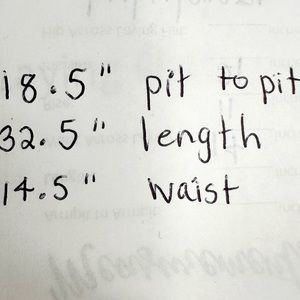 18.5" pit to pit
32.5" length
14.5" waist